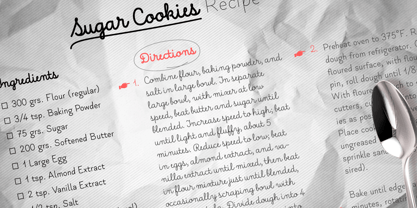 Sugar Cookies Recipe
Ingredients
300 grs. Flour (regular)
3/4 tsp. Baking Powder
75 grs. Sugar
200 grs. Softened Butter
1 Large Egg
1 tsp. Almond Extract
2 tsp. Vanilla Extract
1/2 tsp. Salt
Directions
1. Combine flour, baking powder, and
salt in large bowl. In separate
large bowl, with mixer at low
speed, beat butter and sugar until
blended. Increase speed to high; beat
until light and fluffy, about 5
minutes. Reduce speed to low; beat
in eggs, almond extract, and va-
nilla extract until mixed, then beat
in flour mixture just until blended,
occasionally scraping bowl with
Divide dough into 4
2. Preheat oven to 375°F. R
dough from refrigerator.
floured surface, with flo
pin, roll dough until 1/8
With flour
cutters, c
ies as pos
Place coo
ungreased
sprinkle sa
sired).
Bake until edge